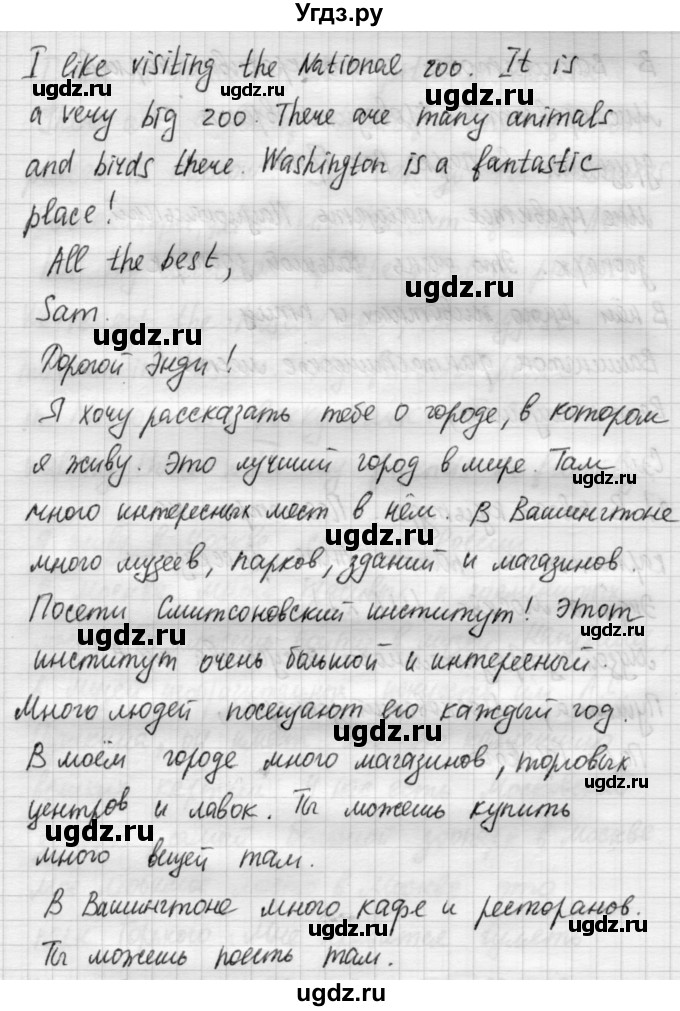 Угдз.ру
I like visiting the National zoo. It is
a very big zoo. There are many animals
and birds there. Washington is a fantastic
place!
All the best,
Sam.
Дорогой Энди!
Я хочу рассказать тебе о городе, в котором
я живу. Это лучший город в мире. Там
много интересных мест в нём. В Вашингтоне
много музеев, парков, зданий и магазинов.
Посети Смитсоновский институт! Этот
институт очень большой и интересный
Много людей посещают его каждый год.
В моём городе много магазинов, торговых
центров и лавок. Ты можешь купить
много вещей там.
В Вашингтоне много кафе и ресторанов.
Ты можешь поесть там.
ugdz.ru